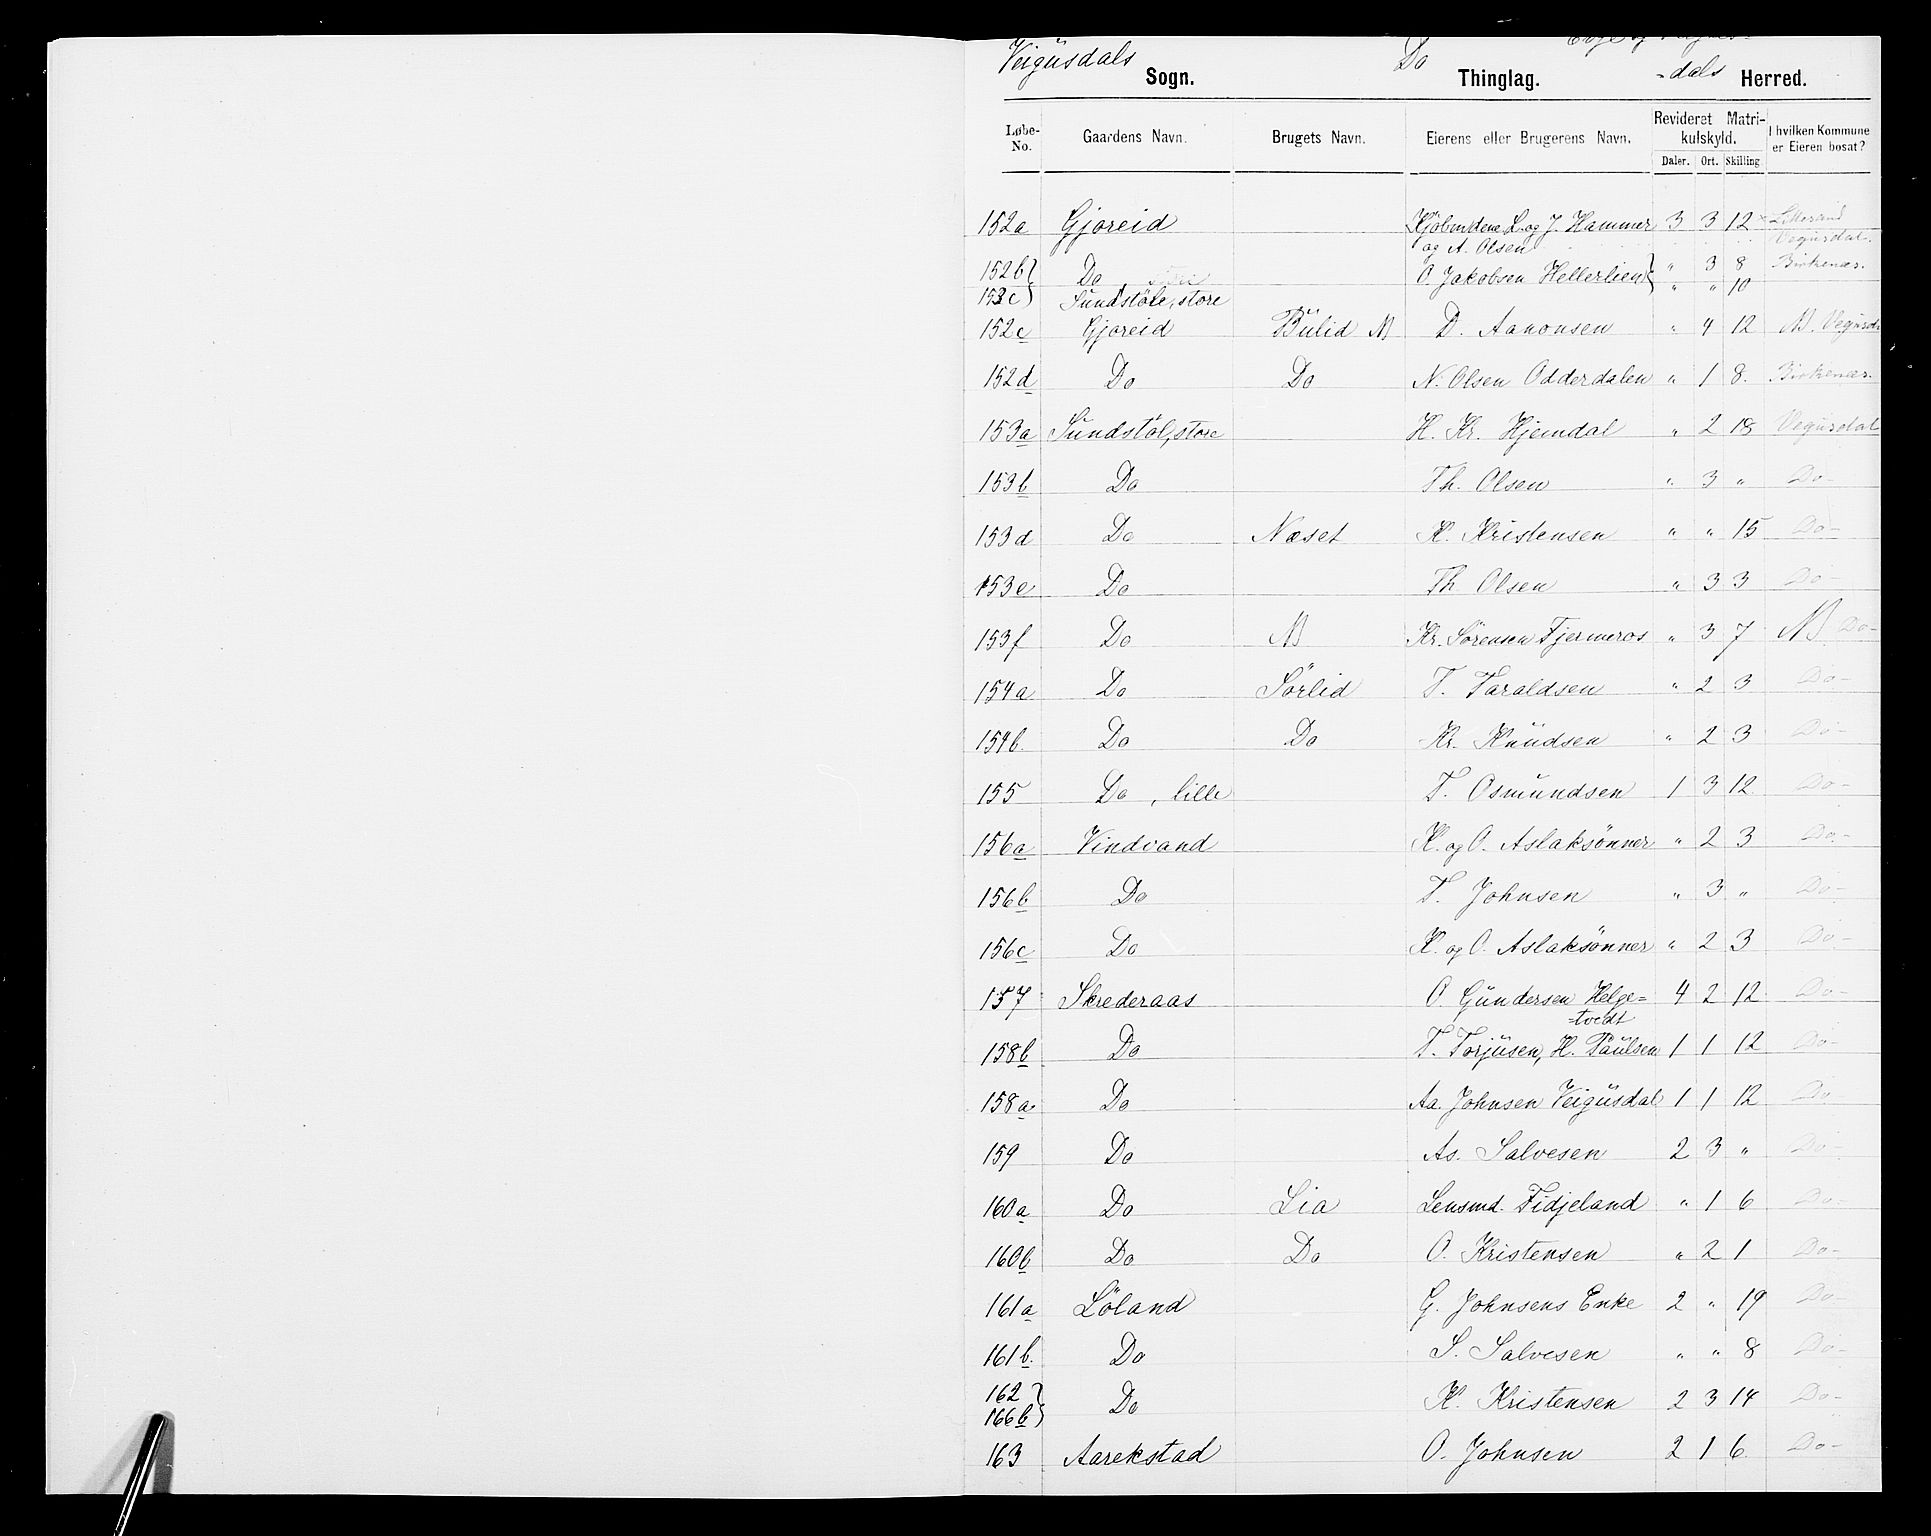 Veigusdals Sogn. Do Thinglag. -dals Herred.
Løbe-No. Gaardens Navn. Brugets Navn. Eierens eller Brugerens Navn. Revideret Matrikulskyld. Daler. Ort. Skilling I hvilken Kommune er Eieren bosat?
152a Gjoreid Kjöbmdene L. og J. Hammer 3 3 12
og A. Olsen Vegusdal.
152b Do O. Jakobsen Hellerlien " 3 8 Birkenæs.
153c Sundstöle, store " " 10
152c Gjoreid Bulid NB D. Aanonsen " 4 12 NB. Vegusdl
152d Do Do N. Olsen Odderdalen " 1 8. Birkenæs.
153a Sundstöl, store H. Kr. Hjemdal " 2 18 Vegusdal
153b Do Th. Olsen " 3 " Do-
153d Do Næset K. Kristensen " " 15 Do-
153e Do Th. Olsen " 3 3 Do-
153f Do NB Kr. Sörensen Fjermeros " 3 7 NB Do-
154a Do Sörlid T. Taraldsen " 2 3 Do-
154b. Do Do Kr. Knudsen " 2 3 Do-
155 Do, lille T. Osmundsen 1 3 12 Do-
156a Vindvand K. og O. Aslaksönner " 2 3 Do-
156b Do T. Johnsen " 3 " Do-
156c Do K. og O. Aslaksönner " 2 3 Do-
157 Skrederaas O. Gundersen Helge= 4 2 12 Do-
=tvedt
158b Do T. Torjusen, H. Paulsen 1 1 12 Do-
158a Do Aa. Johnsen Veigusdal 1 1 12 Do
159 Do As. Salvesen 2 3 " Do-
160a Do Lia Lensmd. Fidjeland " 1 6 Do-
160b Do Do O. Kristensen " 2 1 Do-
161a Löland G. Johnsens Enke 2 " 19 Do-
161b. Do S. Salvesen " " 8 Do-
162
166b Do K. Kristensen 2 3 14 Do-
163 Aarekstad O. Johnsen 2 1 6 Do-